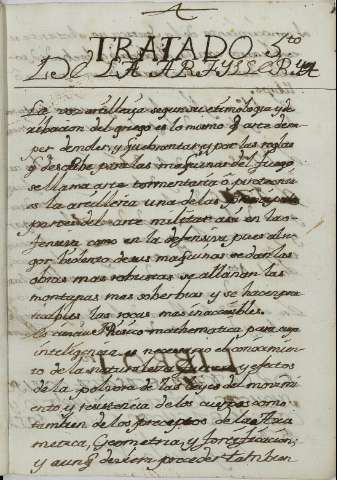 TRATADO 5to
DE LA ARTYLLERYA
La voz artilleria segun su etimologia y de
ribacion del griego es lo mismo q arte de rom
per demoler, y quebrantar, y por las reglas
q describe para las maquinas del fuego
se llama arte tormentaria ô pirotecnia
es la artilleria una de las
partes del arte militar asi en la o
fensiva como en la defensiva pues al ri
gor biolento de sus maquinas ceden las
obras mas robustas se allanan las
montañas mas soberbias y se hacen pra
ticables las rocas mas inaccesibles.
Es ciencia Phisico mathematica para cuya
inteligencia es necesario el conocimien
to de la naturaleza fuerza y efectos
de la polvora de las leyes del movimi
ento y resistencia de los cuerpos como
tambien de los preceptos de la Arit
metica, Geometria y fortificacion;
y aunq deviera preceder tambien